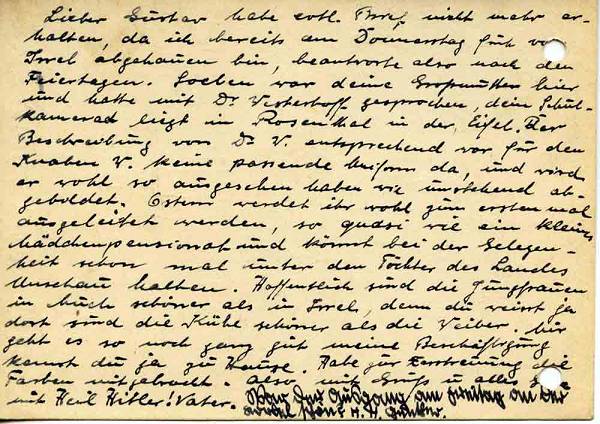 Lieber Gustav habe evtl. Brief nicht mehr er-
halten, da ich bereits am Donnerstag früh von
Irrel abgehauen bin, beantworte also nach den
Feiertagen. Soeben war deine Grossmutter hier
und hatte mit Dr. Westerhoff gesprochen, dein Schul-
kamerad liegt in Rosenthal in der Eifel. Der
Beschreibung von Dr V. entsprechend war für den
Knaben V. keine passende Uniform da, und wird
er wohl so ausgesehen haben wie umstehend ab-
gebildet. Ostern werdet ihr wohl zum ersten mal
ausgeleitet werden, so quasi wie ein kleines
Mädchenpensionat und könnt bei der Gelegen-
heit schon mal unter den Töchter des Landes
Umschau halten. Hoffentlich sind die Jungfrauen
in buch schöner als in Irrel, denn du weisst ja
dort sind die Kühe schöner als die Weiber. Mir
geht es so noch ganz gut meine Beschäftigung
kennst du ja zu Hause. Habe zur Zerstreuung die
Farben mitgebracht. Also mit Gruss u alles
mit Heil Hitler! Vater. War der Ausgang am Freitag an der
schön? H. H. Günter.